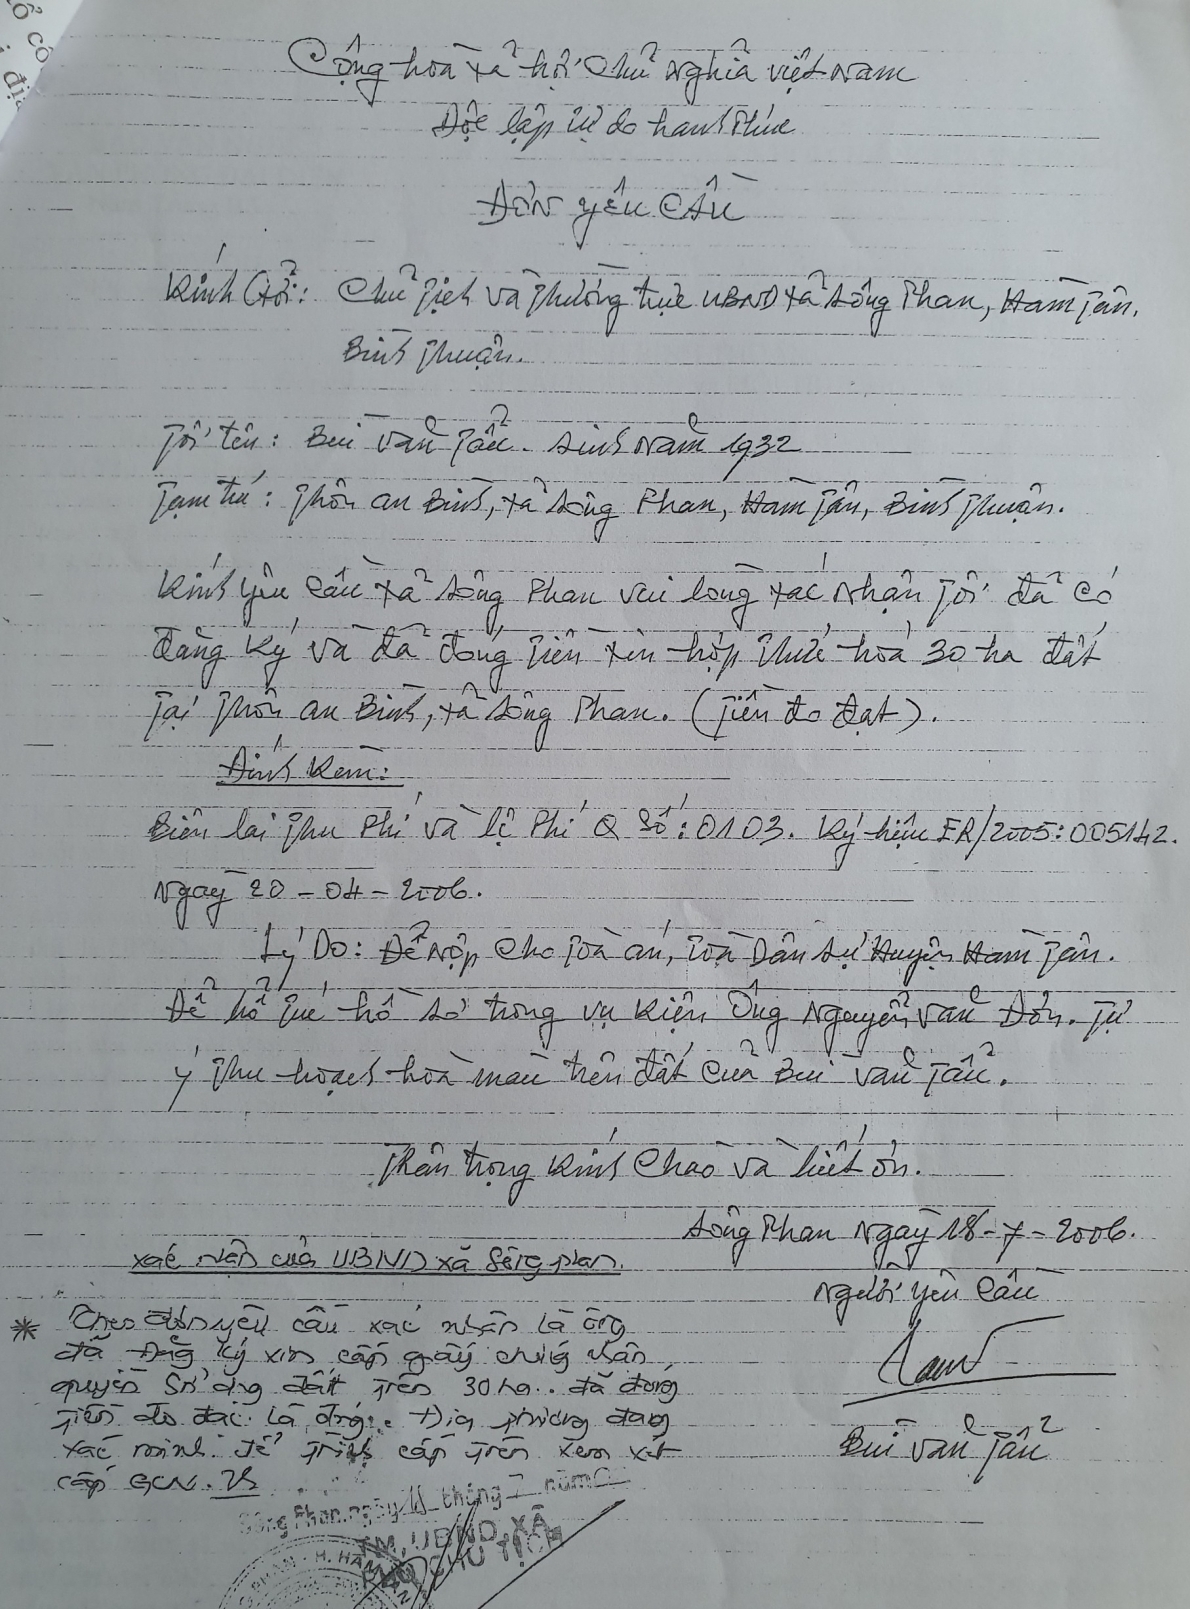 Cộng hòa xã hội Chủ Nghĩa việt Nam
Độc lập tự do hạnh Phúc
Đơn yêu cầu
Kính Gởi: Chủ Tịch và Thường trực UBND xã Sông Phan, Hàm Tân,
Bình Thuận.
Tôi tên: Bùi Văn Tẩu. Sinh Năm 1932
Tạm trú: Thôn an Bình, xã Sông Phan, Hàm Tân, Bình Thuận.
Kính yêu cầu xã Sông Phan vui lòng xác Nhận Tôi đã có
đăng ký và đã đóng Tiền xin hợp Thức hóa 30 ha đất
Tại Thôn an Bình, xã Sông Phan. (Tiền đo đạt).
Đính Kèm:
Biên lai Thu Phí và lệ Phí Q Số: 0103. Ký hiệu ER/2005: 005142.
Ngày 20 - 04 - 2006.
Lý Do: Để Nộp Cho Toà án, Toà Dân Sự Huyện Hàm Tân.
Để hổ Túc hồ sơ trong vụ kiện Ông Nguyễn Văn Đơn. Tự
ý Thu hoạch hoa màu trên đất của Bùi Văn Tẩu.
Thân trọng Kính Chào và biết ơn.
Sông Phan Ngày 18 - 7 - 2006.
Người yêu cầu
Bùi Văn Tẩu
xác nhận của UBND xã Sông phan.
* Theo đơn yêu cầu xác nhận là ông
đã đăng ký xin cấp giấy chứng nhận
quyền Sử dụng đất trên 30 ha.. đã đóng
tiền đo đạc là đúng. Địa phương đang
xác minh để trình cấp trên xem xét
cấp GCN.
Sông Phan, ngày tháng 7 năm
TM. UBND XÃ
PHÓ CHỦ TỊCH
PHAN - H. HÀM